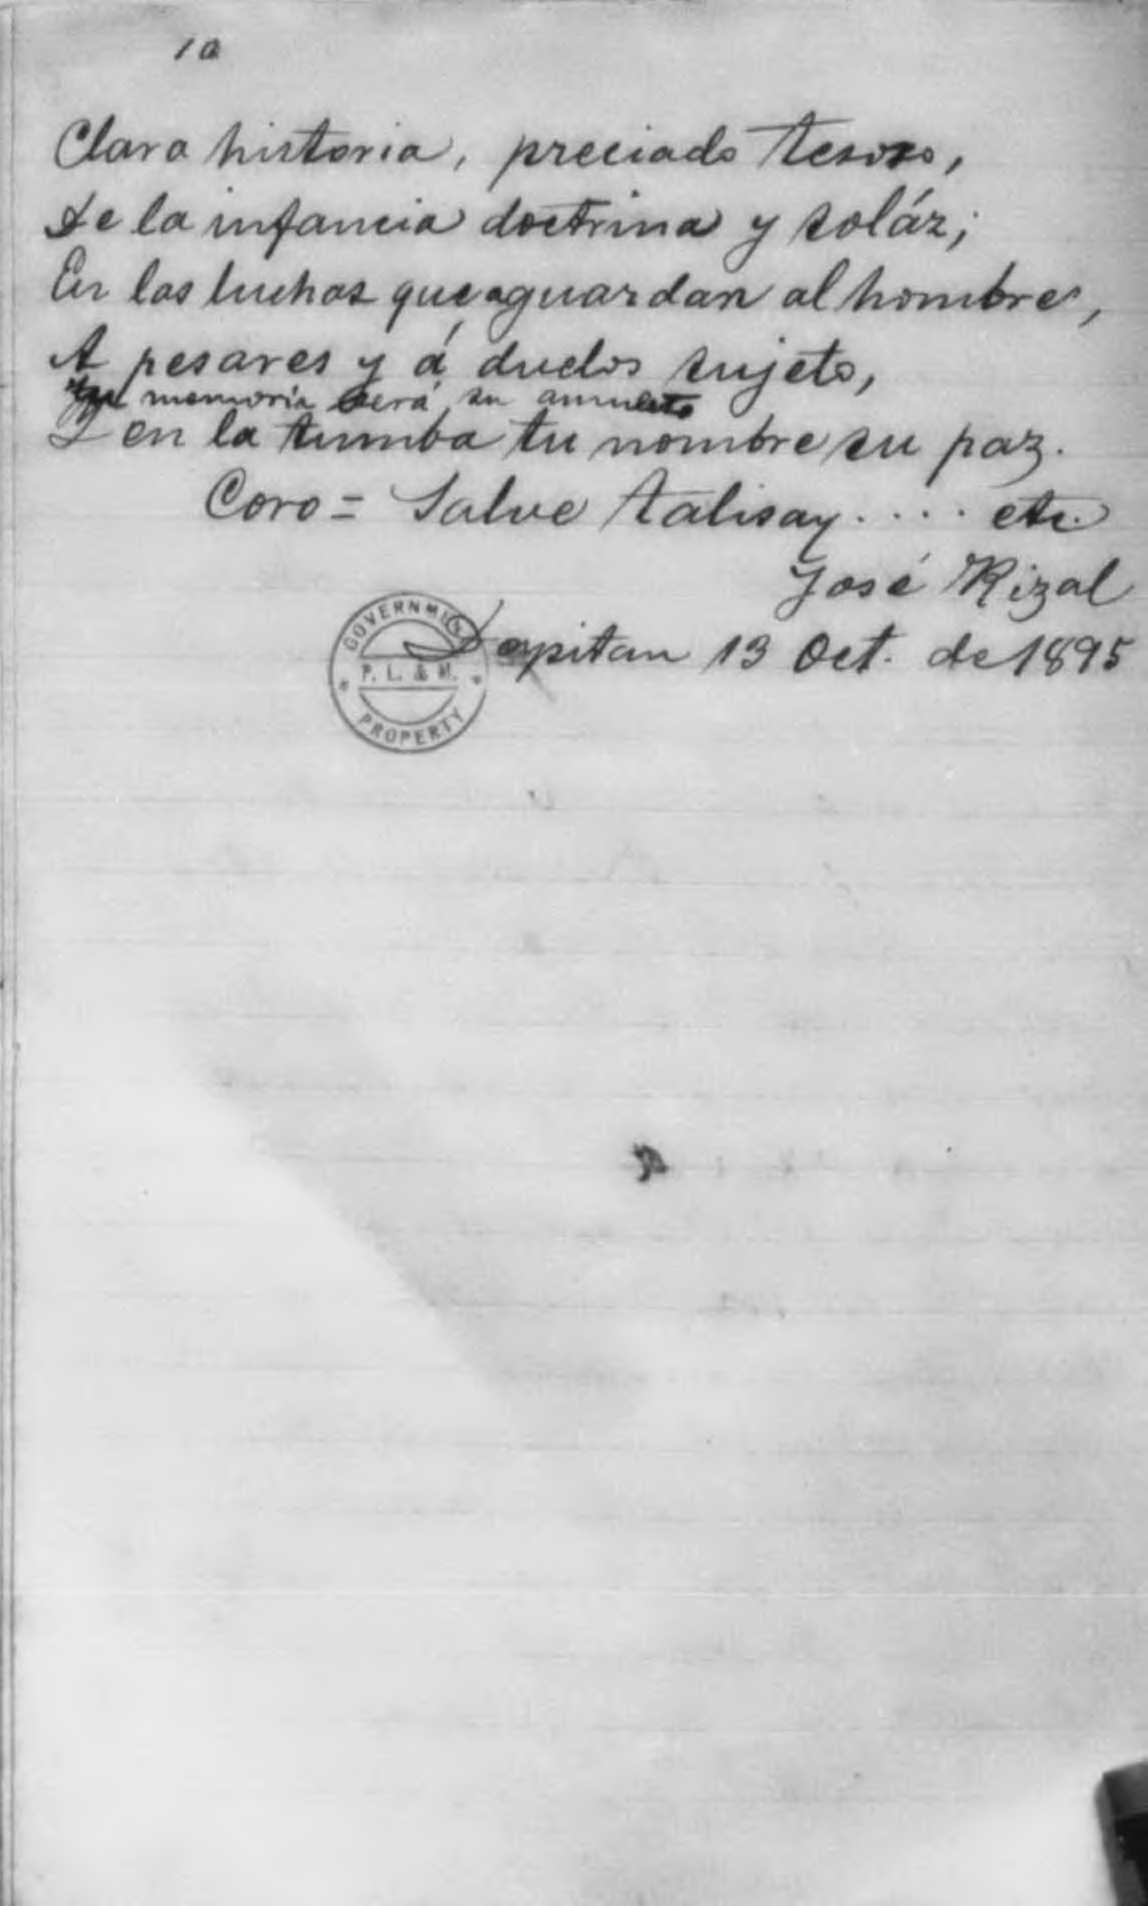 10
Clara historia, preciado tesoro,
De la infancia doctrina y soláz;
En las luchas que aguardan al hombre,
A pesares y á duelos sujeto,
Tu memoria será su amuleto
Y en la tumba tu nombre su paz.
Coro = Salve Talisay . . . . etc.
José Rizal
Dapitan 13 Oct. de 1895
GOVERNMENT
P. L. & M.
PROPERTY